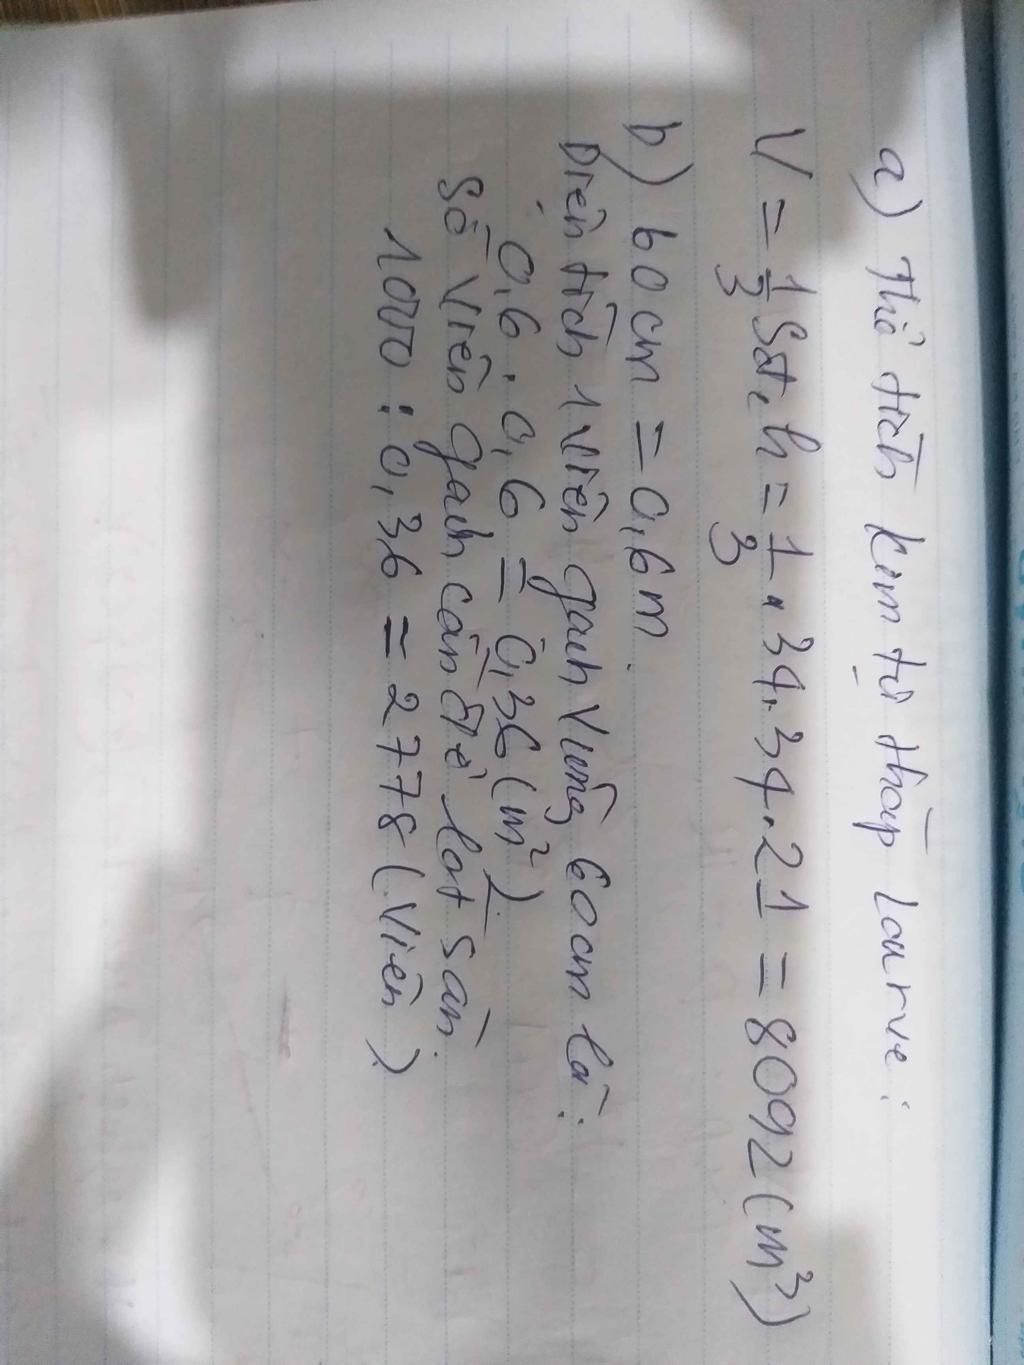 a) Thể tích kim tự tháp Lourve:
V = 1/3 Sđ.h = 1/3 . 34.34.21 = 8092 (m³)
b) 60cm = 0,6m.
Diện tích 1 viên gạch vuông 60cm là:
0,6 . 0,6 = 0,36 (m²)
Số viên gạch cần để lát sàn.
1000 : 0,36 = 2778 (viên)